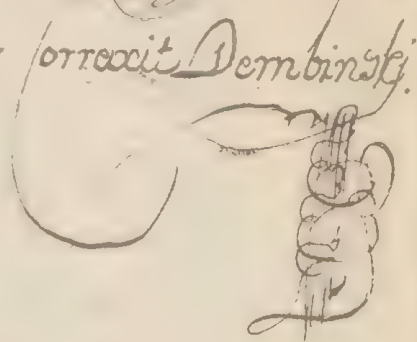 Correxit Dembinski.